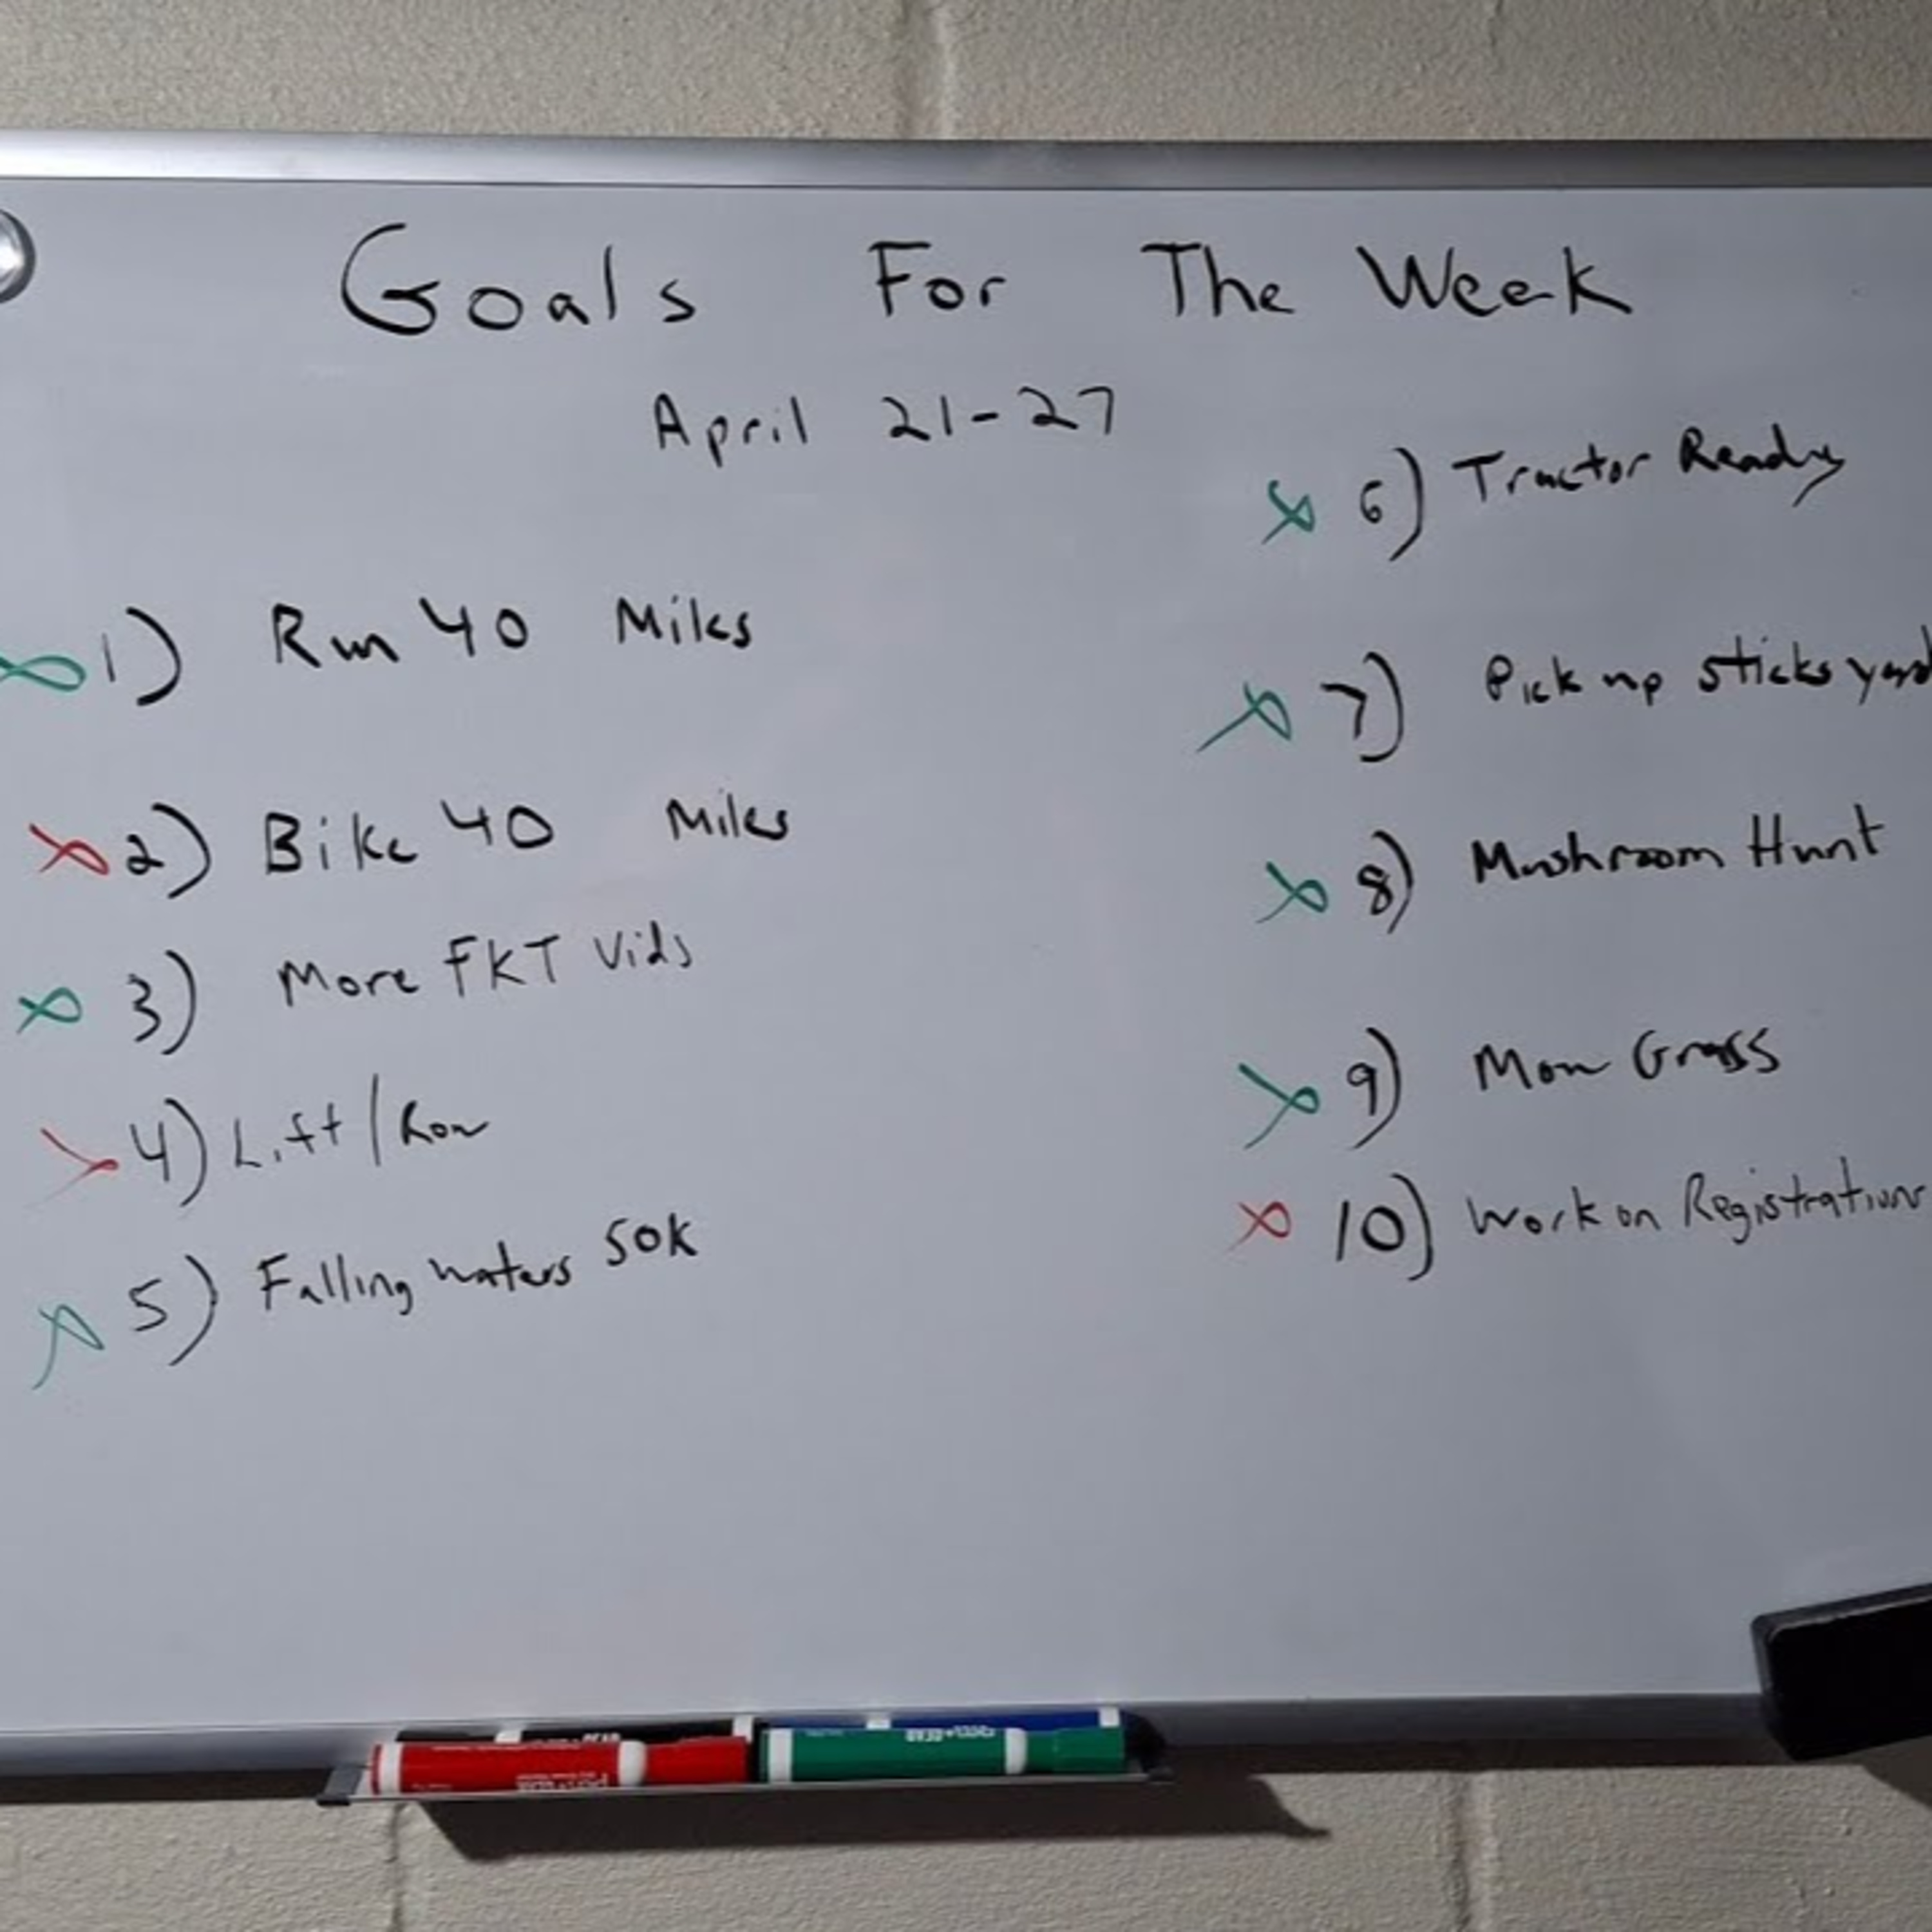 Goals For The Week
April 21-27
1) Run 40 Miles
2) Bike 40 Miles
3) More FKT Vids
4) Lift/Row
5) Falling Waters 50K
6) Tractor Ready
7) Pick up sticks yard
8) Mushroom Hunt
9) Mow Grass
10) Work on Registrations